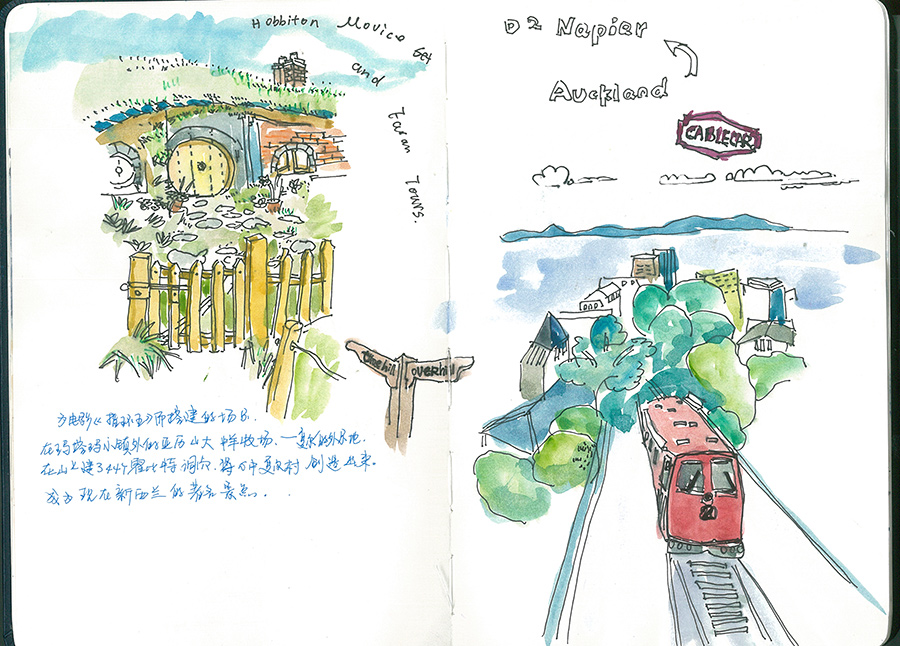 Hobbiton Movice Get
and
Faran
Tours.
overhill
为电影《指环王》而搭建的场景.
在玛塔玛小镇外的亚历山大 牧场.
在山上建了44个霍比特洞穴. 夏尔村 创造出来。
成为现在新西兰的著名景点.
D2 Napier
Auckland
CABLECAR